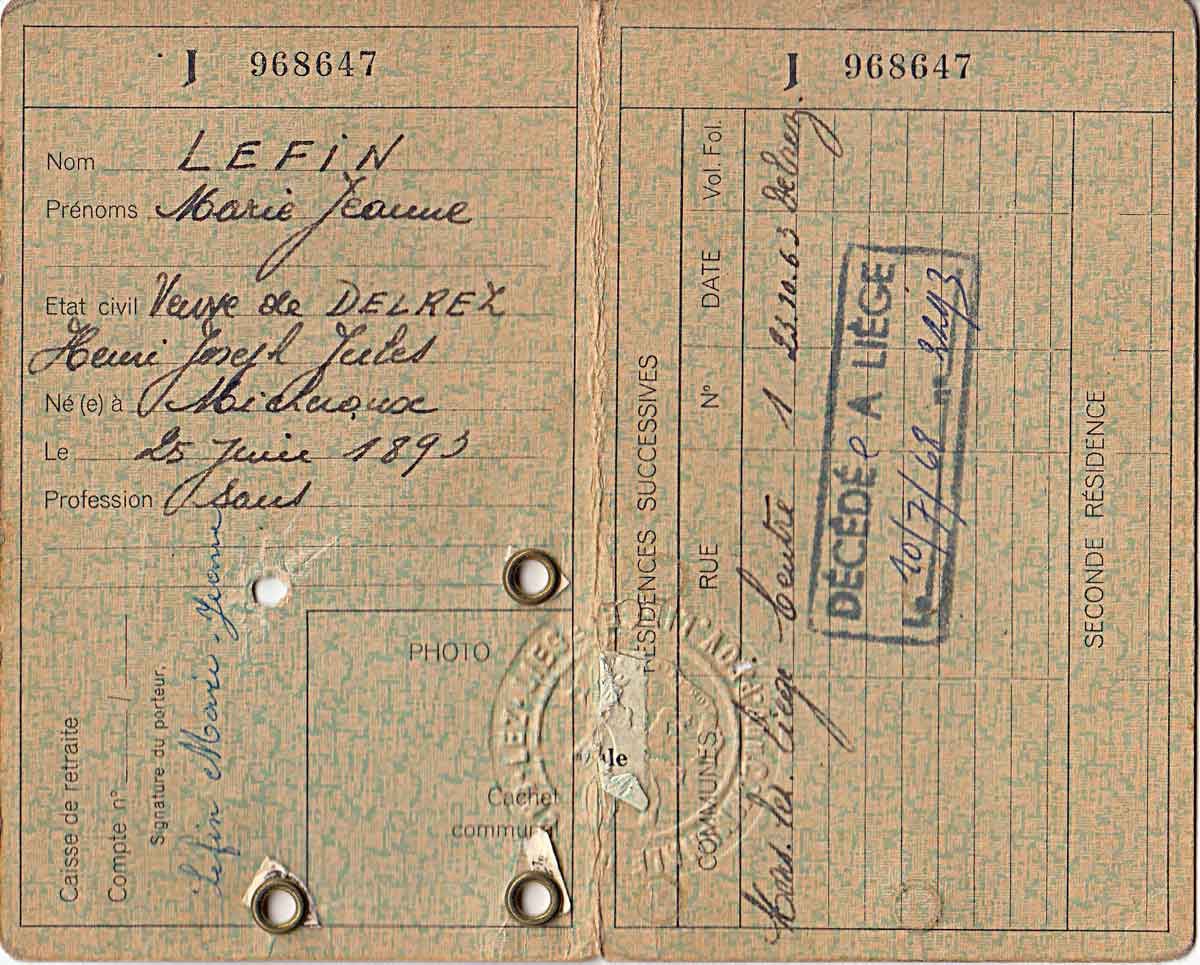 J 968647
Nom LEFIN
Prénoms Marie Jeanne
Etat civil Veuve de DELREZ
Henri Joseph Jules
Né (e) à Micheroux
Le 25 Juin 1893
Profession sans
PHOTO
Cachet
communal
Caisse de retraite
Compte n° /
Signature du porteur.
Lefin Marie-Jeanne
J 968647
RÉSIDENCES SUCCESSIVES
COMMUNES RUE N° DATE Vol. Fol.
lez Liège Centre 1 23.10.63 Delrez
DÉCÉDÉe A LIÈGE
le 10/7/68 n°
SECONDE RÉSIDENCE